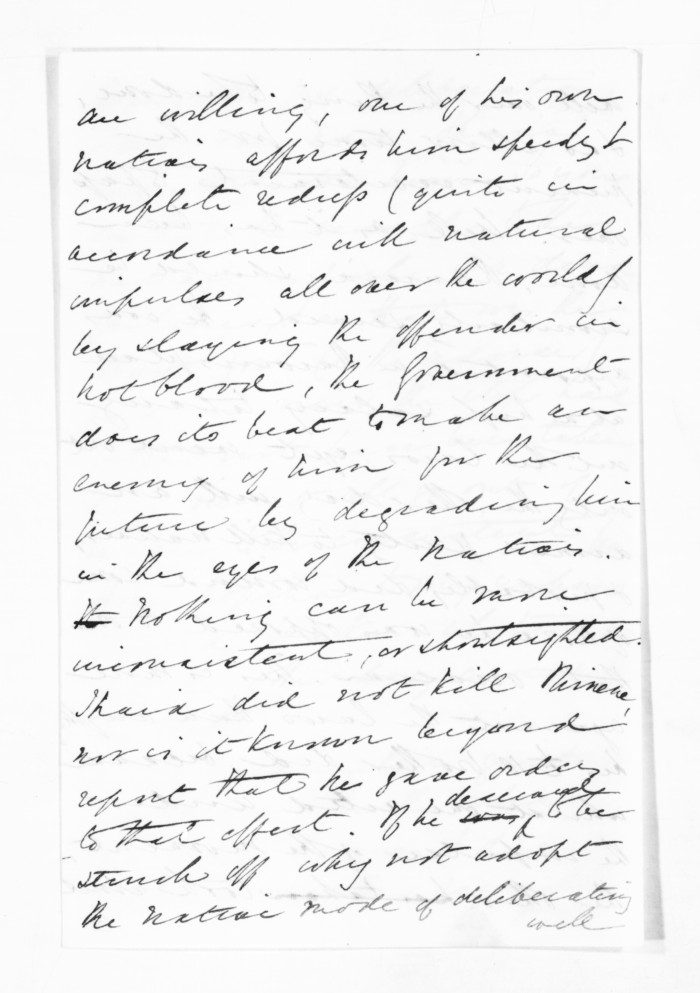 are willing, one of his own
natives affords him speedy &
complete redress (quite in
accordance with natural
impulses all over the world)
by slaying the offender in
hot blood, the Government
does its best to make an
enemy of him for the
future by degrading him
in the eyes of the natives.
It Nothing can be more
inconsistent, or shortsighted.
Ihaia did not kill
nor is it known beyond
report that he gave orders
to that effect. If he was deserved to be
struck off why not adopt
the native mode of deliberating
well